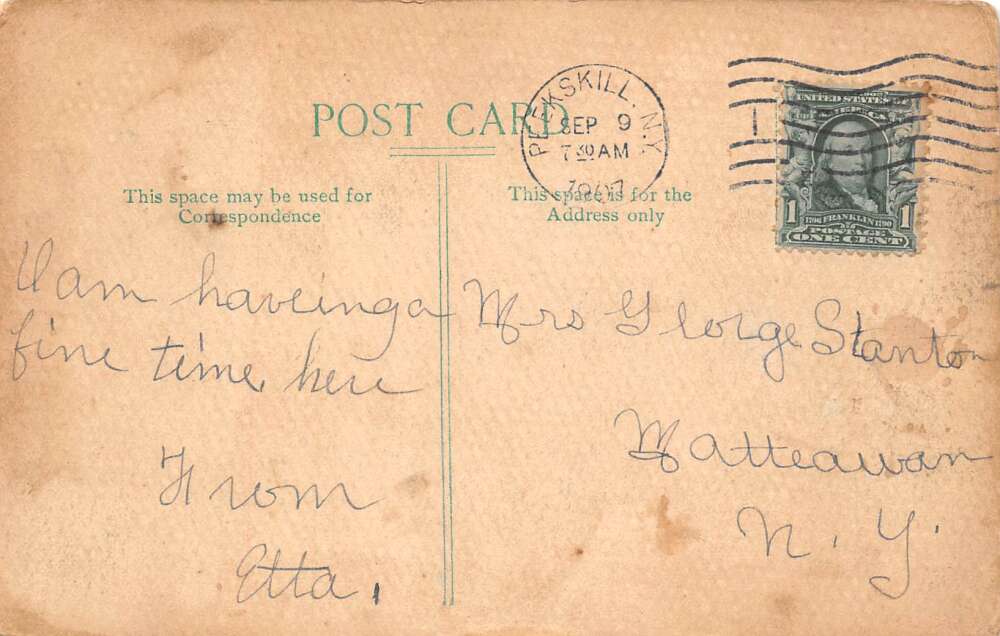 POST CARD
This space may be used for
Correspondence
This space is for the
Address only
PEEKSKILL, N.Y.
SEP 9
7 30 AM
1907
UNITED STATES OF
AMERICA
1 1706 FRANKLIN 1790 1
POSTAGE
ONE CENT
I am haveing a
fine time, here
From
Etta.
Mrs George Stanton
Matteawan
N. Y.